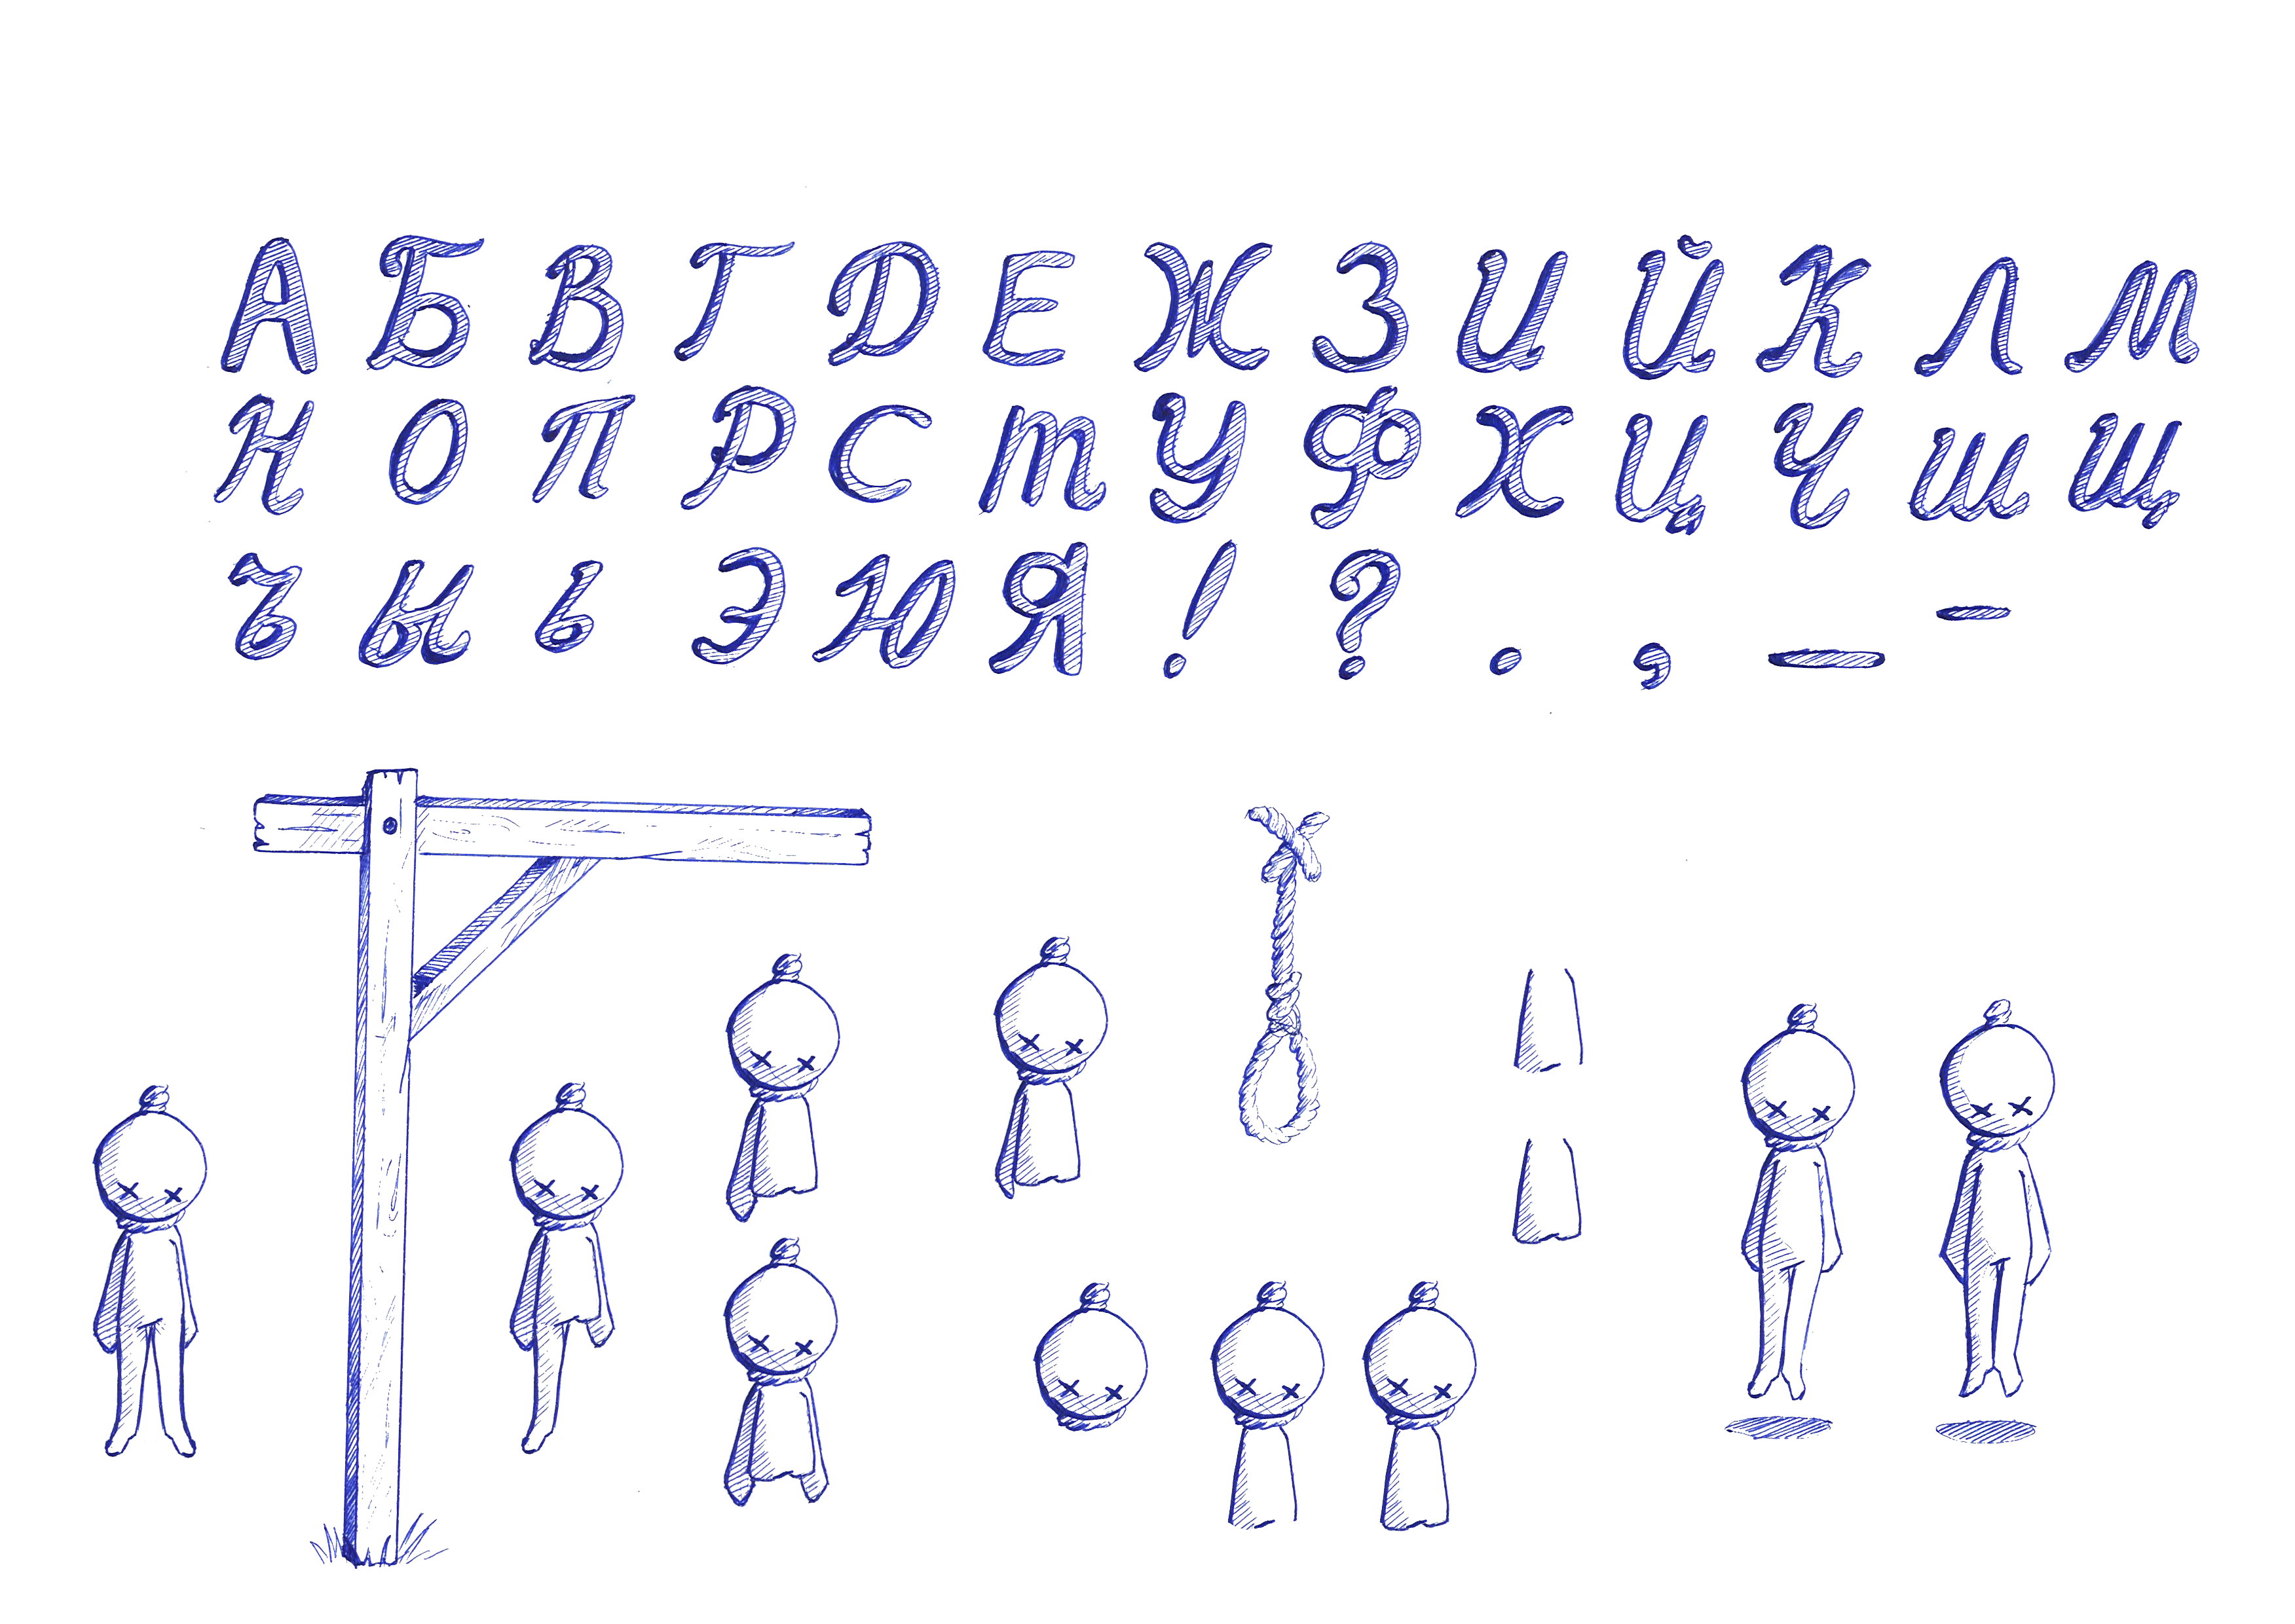 А Б В Г Д Е Ж З И Й К Л М
Н О П Р С Т У Ф Х Ц Ч Ш Щ
Ъ Ы Ь Э Ю Я ! ? . , _ -